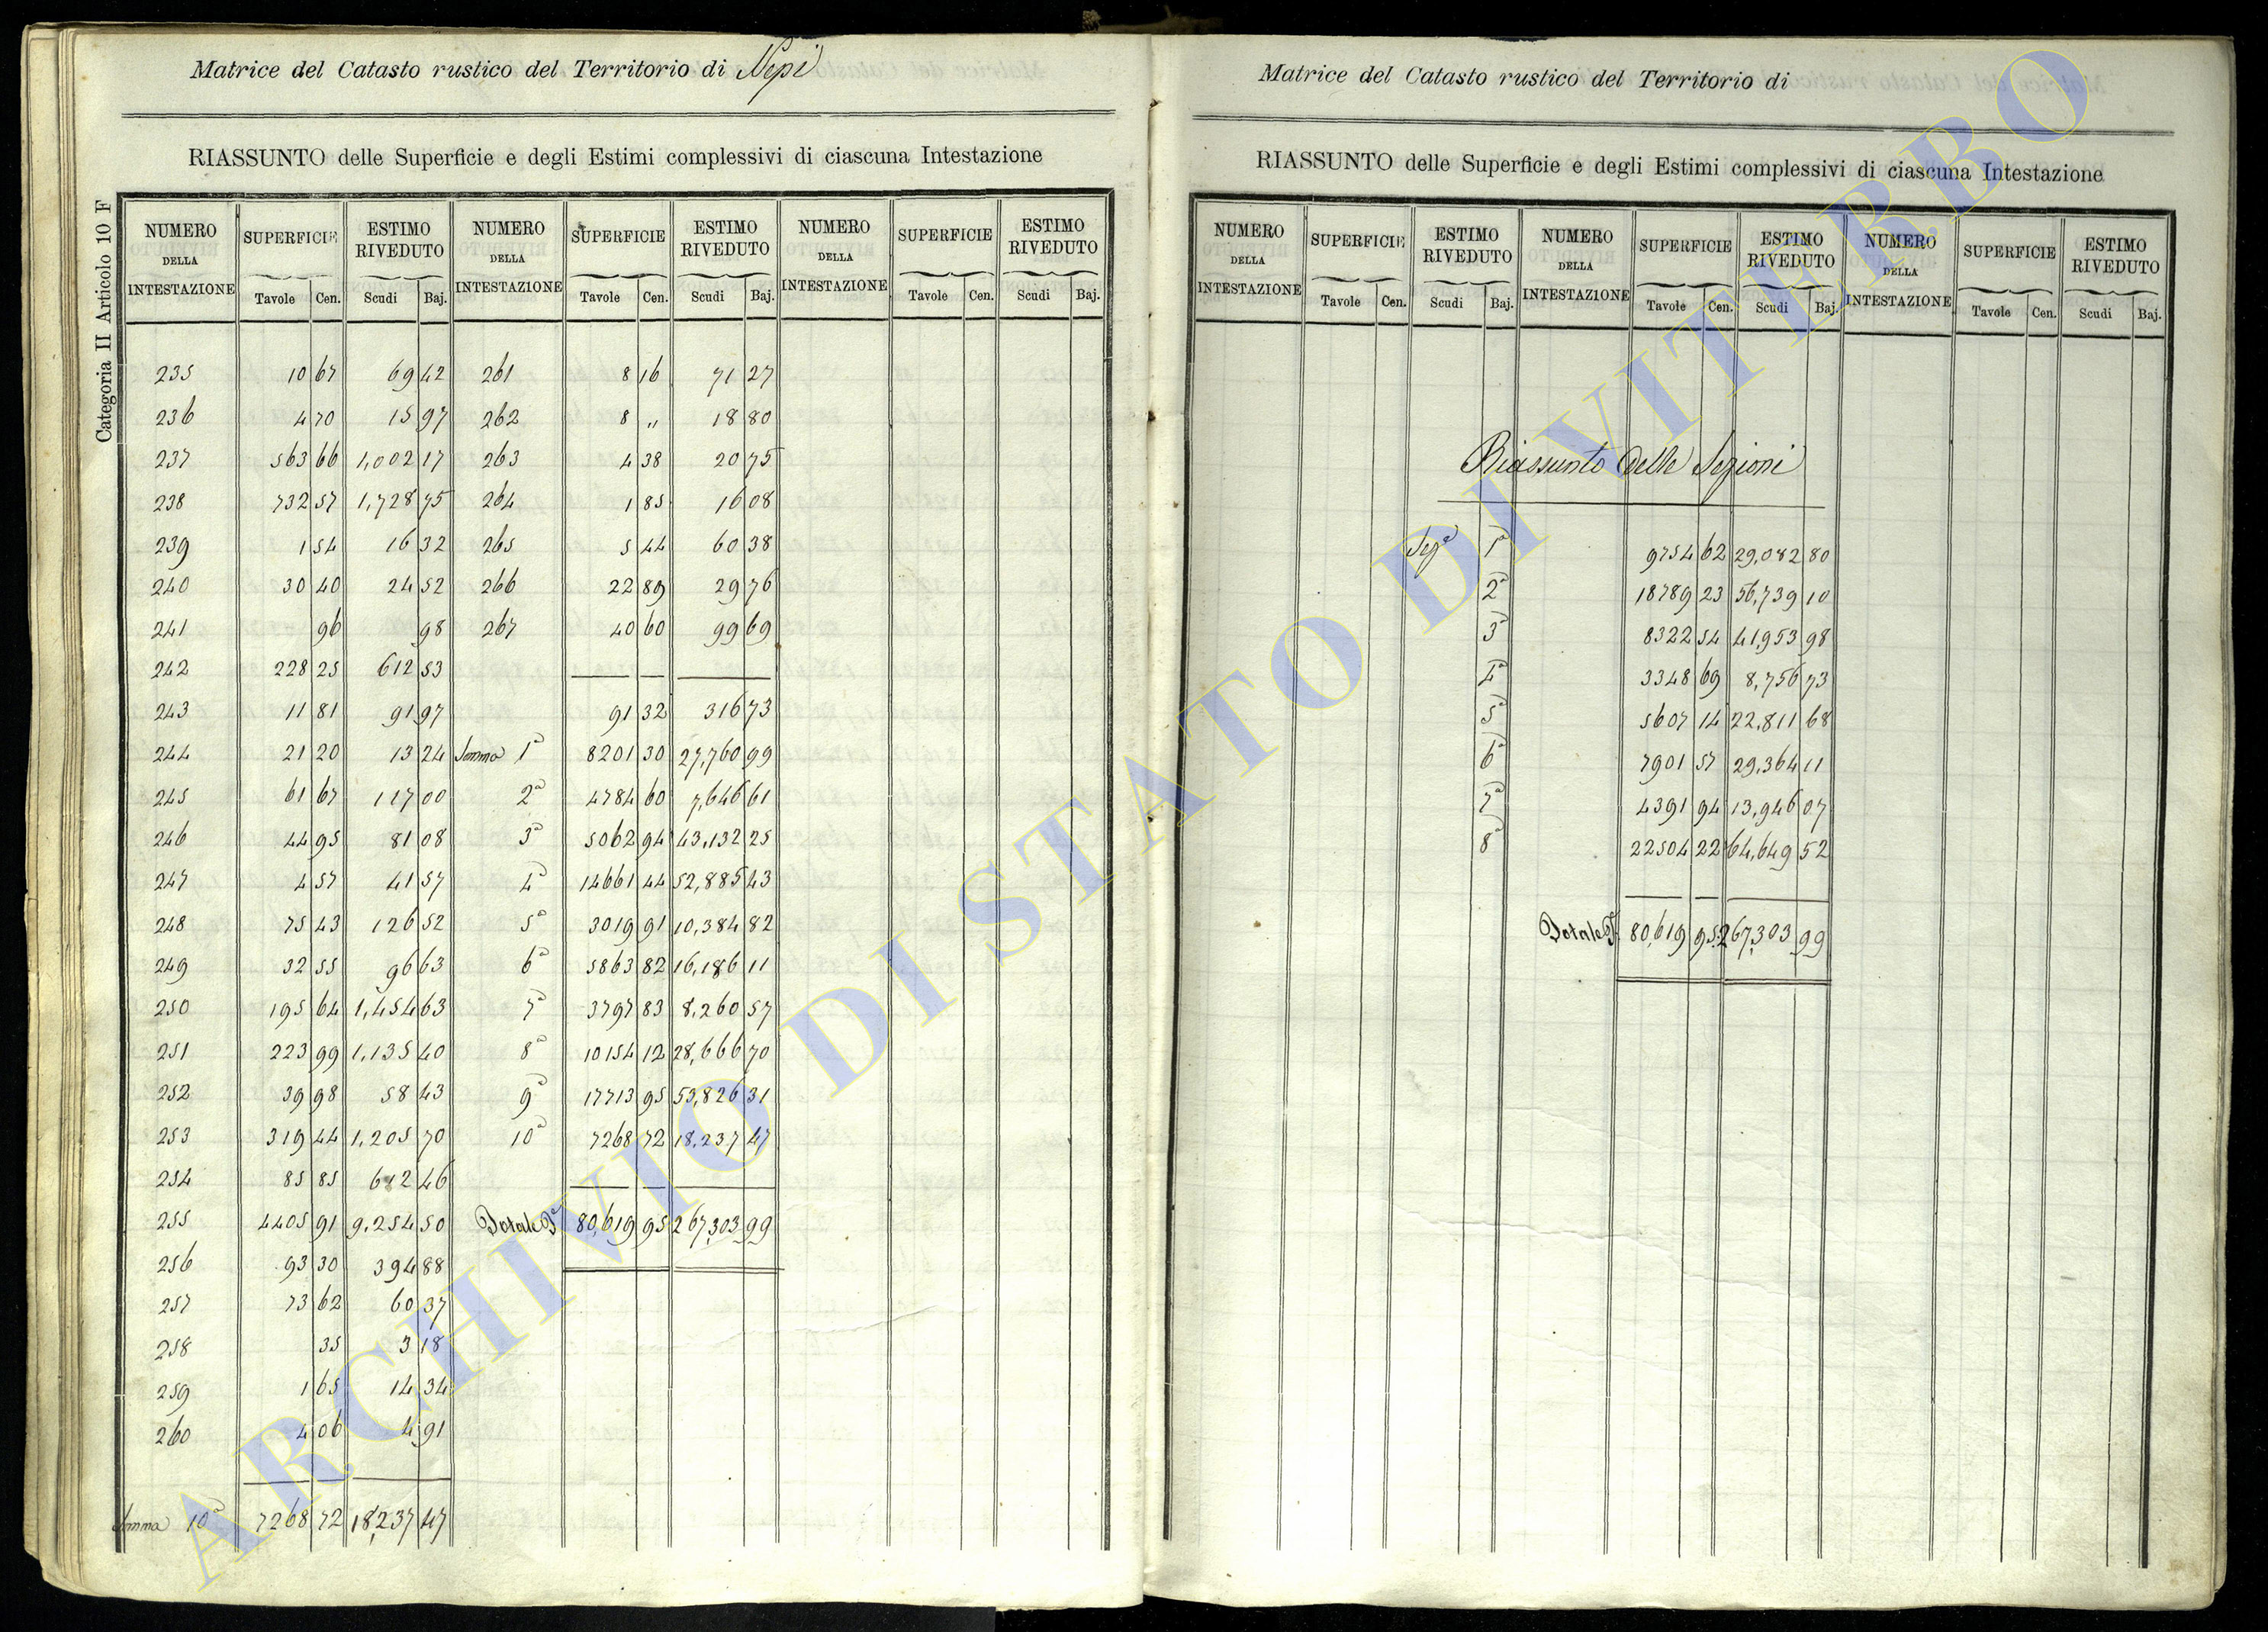 Matrice del Catasto rustico del Territorio di Nepi
RIASSUNTO delle Superficie e degli Estimi complessivi di ciascuna Intestazione
Categoria II Articolo 10 F
NUMERO DELLA INTESTAZIONE SUPERFICIE ESTIMO RIVEDUTO NUMERO DELLA INTESTAZIONE SUPERFICIE ESTIMO RIVEDUTO NUMERO DELLA INTESTAZIONE SUPERFICIE ESTIMO RIVEDUTO
Tavole Cen. Scudi Baj. Tavole Cen. Scudi Baj. Tavole Cen. Scudi Baj.
235 10 67 69 42 261 8 16 71 27
236 4 70 15 97 262 8 „ 18 80
237 563 66 1,002 17 263 4 38 20 75
238 732 57 1,728 75 264 1 85 16 08
239 1 54 16 32 265 5 44 60 38
240 30 40 24 52 266 22 89 29 76
241 96 98 267 40 60 99 69
242 228 25 612 53
243 11 81 91 97 91 32 316 73
244 21 20 13 24 Somma 1ª 8201 30 27,760 99
245 61 67 117 00 2ª 4784 60 7,646 61
246 44 95 81 08 3ª 5062 94 43,132 25
247 4 57 41 57 4ª 14661 44 52,885 43
248 75 43 126 52 5ª 3019 91 10,384 82
249 32 55 96 63 6ª 5863 82 16,186 11
250 195 64 1,454 63 7ª 3797 83 8,260 57
251 223 99 1,135 40 8ª 10154 12 28,666 70
252 39 98 58 43 9ª 17713 95 53,826 31
253 319 44 1,205 70 10ª 7268 72 18,237 47
254 85 85 612 46
255 4405 91 9,254 50 Totale 80,619 95 267,303 99
256 93 30 394 88
257 73 62 60 37
258 35 3 18
259 1 65 14 34
260 4 06 4 91
Somma 10ª 7268 72 18,237 47
Matrice del Catasto rustico del Territorio di
RIASSUNTO delle Superficie e degli Estimi complessivi di ciascuna Intestazione
NUMERO DELLA INTESTAZIONE SUPERFICIE ESTIMO RIVEDUTO NUMERO DELLA INTESTAZIONE SUPERFICIE ESTIMO RIVEDUTO NUMERO DELLA INTESTAZIONE SUPERFICIE ESTIMO RIVEDUTO
Tavole Cen. Scudi Baj. Tavole Cen. Scudi Baj. Tavole Cen. Scudi Baj.
Riassunto delle Sezioni
Sezª 1ª 9754 62 29,082 80
2ª 18789 23 56,739 10
3ª 8322 54 41,953 98
4ª 3348 69 8,756 73
5ª 5607 14 22,811 68
6ª 7901 57 29,364 11
7ª 4391 94 13,946 07
8ª 22504 22 64,649 52
Totale 80,619 95 267,303 99
ARCHIVIO DI STATO DI VITERBO